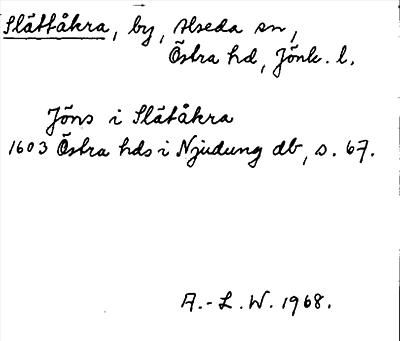 Slättåkra, by, Alseda sn,
Östra hd, Jönk. l.
Jöns i Slätåkra
1603 Östra hds i Njudung db, s. 67.
A.-L. W. 1968.